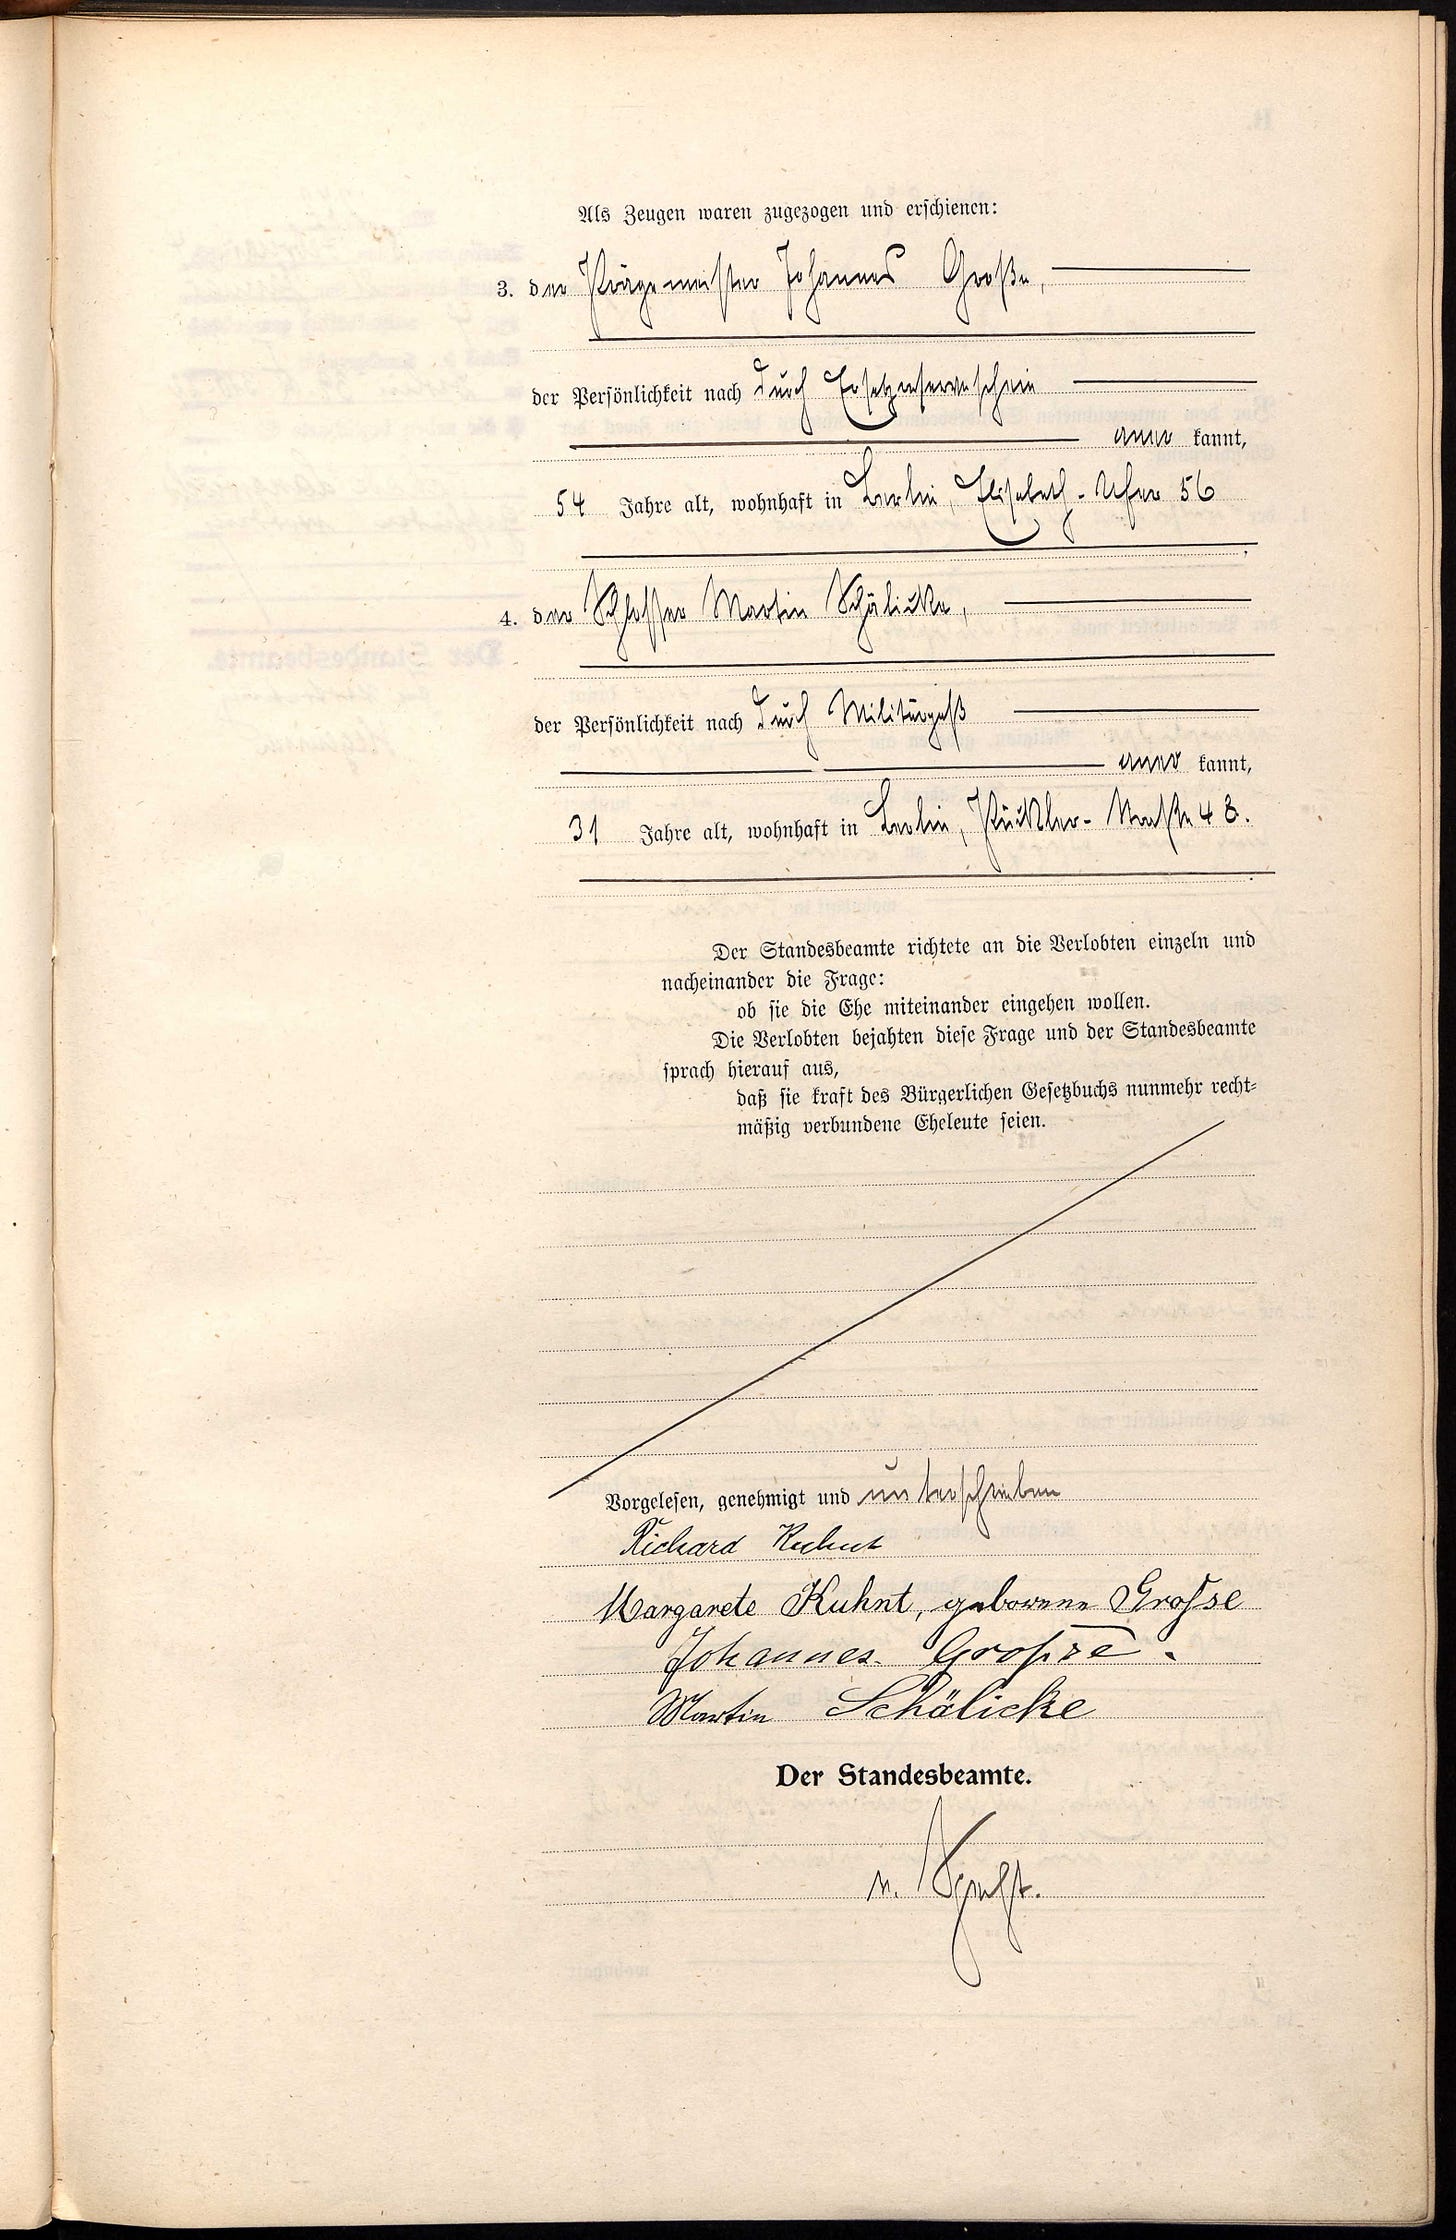 Als Zeugen waren zugezogen und erschienen:
3. der Prägemeister Johannes Große,
der Persönlichkeit nach durch Ersatzreserveschein
aner kannt,
54 Jahre alt, wohnhaft in Berlin, Elisabeth-Ufer 56
4. der Schlosser Martin Schälicke,
der Persönlichkeit nach durch Militärpaß
aner kannt,
31 Jahre alt, wohnhaft in Berlin, Pückler-Straße 48.
Der Standesbeamte richtete an die Verlobten einzeln und
nacheinander die Frage:
ob sie die Ehe miteinander eingehen wollen.
Die Verlobten bejahten diese Frage und der Standesbeamte
sprach hierauf aus,
daß sie kraft des Bürgerlichen Gesetzbuchs nunmehr recht-
mäßig verbundene Eheleute seien.
Vorgelesen, genehmigt und unterschrieben
Richard Kuhnt
Margarete Kuhnt, geborene Grosse
Johannes Grosse.
Martin Schälicke
Der Standesbeamte.